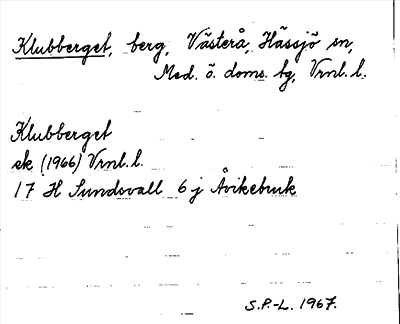 Klubberget, berg, Västerå, Hässjö sn,
Med. ö. doms. tg, Vrnl. l.
Klubberget
ek (1966) Vrnl. l.
17 H Sundsvall 6 j Åvikebruk
S.P.-L. 1967.